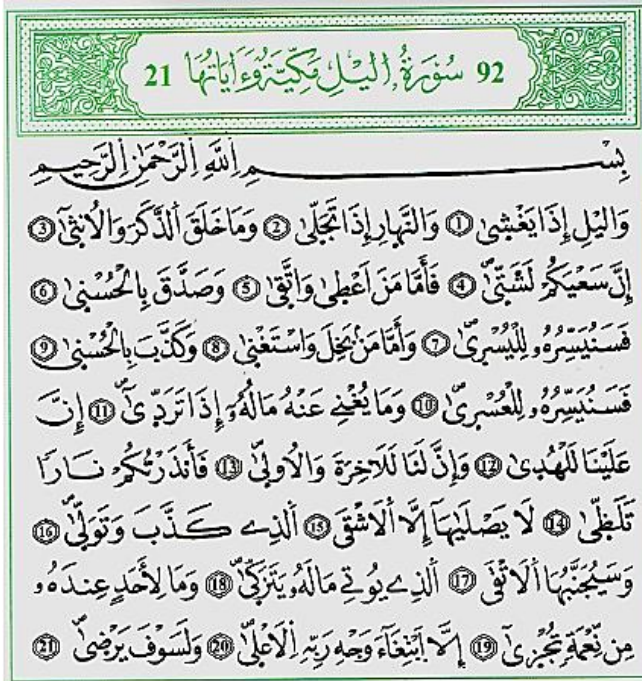 92 سُورَةُ اليْلِ مَكِّيَّةٌ وَءَايَاتُهَا 21
بِسْمِ اِللَّهِ اِلرَّحْمَٰنِ اِلرَّحِيمِ
وَاليْلِ إِذَا يَغْش۪ىٰ ① وَالنَّه۪ارِ إِذَا تَجَلّ۪ىٰ ② وَمَا خَلَقَ اَلذَّكَرَ وَالُانث۪ىٰٓ ③
إِنَّ سَعْيَكُمْ لَشَتّ۪ىٰ ④ فَأَمَّا مَنَ اَعْط۪ىٰ وَاتَّق۪ىٰ ⑤ وَصَدَّقَ بِالْحُسْن۪ىٰ ⑥
فَسَنُيَسِّرُهُۥ لِلْيُسْر۪ىٰ ⑦ وَأَمَّا مَنۢ بَخِلَ وَاسْتَغْن۪ىٰ ⑧ وَكَذَّبَ بِالْحُسْن۪ىٰ ⑨
فَسَنُيَسِّرُهُۥ لِلْعُسْر۪ىٰ ⑩ وَمَا يُغْنِے عَنْهُ مَالُهُۥٓ إِذَا تَرَدّ۪ىٰٓ ⑪ إِنَّ
عَلَيْنَا لَلْهُد۪ىٰ ⑫ وَإِنَّ لَنَا لَلَاخِرَةَ وَالُاول۪ىٰ ⑬ فَأَنذَرْتُكُمْ نَارًا
تَلَظّ۪ىٰ ⑭ لَا يَصْلَيٰهَآ إِلَّا اَلَاشْقَى ⑮ اَلذِے كَذَّبَ وَتَوَلّ۪ىٰ ⑯
وَسَيُجَنَّبُهَا اَلَاتْقَى ⑰ اَلذِے يُوتِے مَالَهُۥ يَتَزَكّ۪ىٰ ⑱ وَمَا لِأَحَدٍ عِندَهُۥ
مِن نِّعْمَةٖ تُجْز۪ىٰٓ ⑲ إِلَّا اَبْتِغَآءَ وَجْهِ رَبِّهِ اِلَاعْل۪ىٰ ⑳ وَلَسَوْفَ يَرْض۪ىٰ ㉑